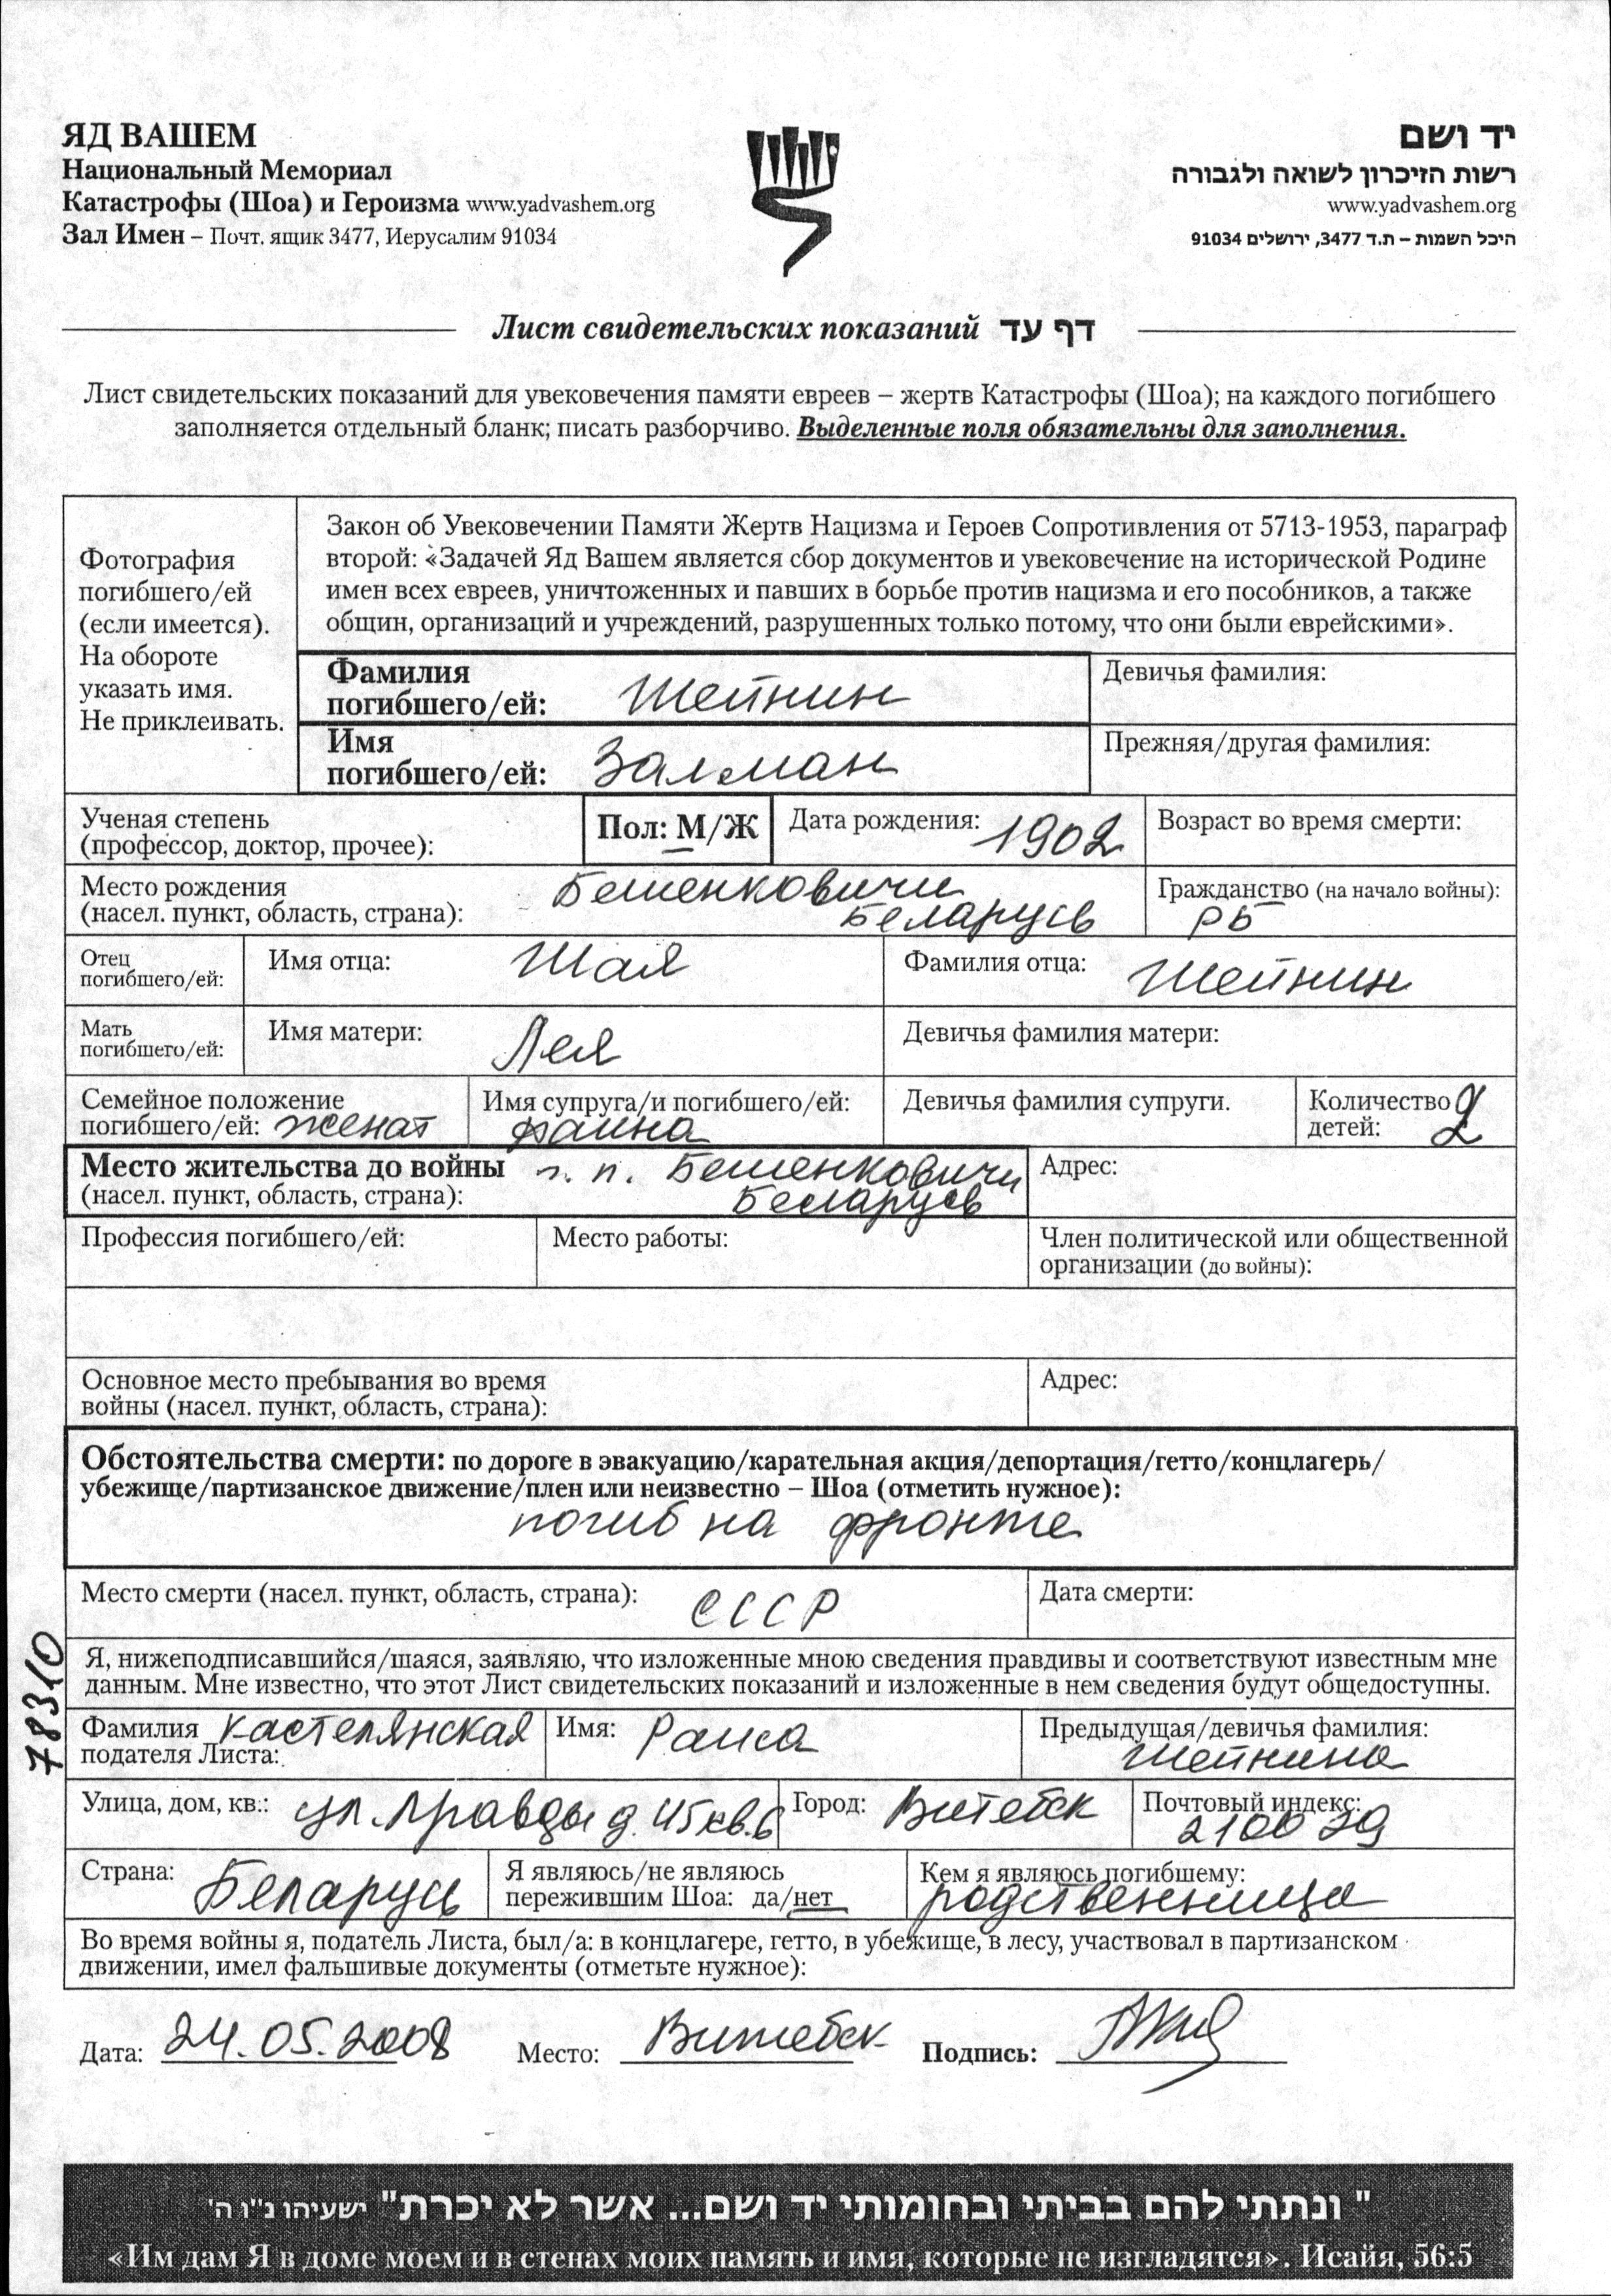 ЯД ВАШЕМ
Национальный Мемориал
Катастрофы (Шоа) и Героизма www.yadvashem.org
Зал Имен – Почт. ящик 3477, Иерусалим 91034
יד ושם
רשות הזיכרון לשואה ולגבורה
www.yadvashem.org
היכל השמות – ת.ד 3477, ירושלים 91034
Лист свидетельских показаний דף עד
Лист свидетельских показаний для увековечения памяти евреев – жертв Катастрофы (Шоа); на каждого погибшего
заполняется отдельный бланк; писать разборчиво. Выделенные поля обязательны для заполнения.
Фотография
погибшего/ей
(если имеется).
На обороте
указать имя.
Не приклеивать.
Закон об Увековечении Памяти Жертв Нацизма и Героев Сопротивления от 5713-1953, параграф
второй: «Задачей Яд Вашем является сбор документов и увековечение на исторической Родине
имен всех евреев, уничтоженных и павших в борьбе против нацизма и его пособников, а также
общин, организаций и учреждений, разрушенных только потому, что они были еврейскими».
Фамилия
погибшего/ей: Шейнин
Девичья фамилия:
Имя
погибшего/ей: Залман
Прежняя/другая фамилия:
Ученая степень
(профессор, доктор, прочее):
Пол: М/Ж
Дата рождения: 1902
Возраст во время смерти:
Место рождения
(насел. пункт, область, страна): Бешенковичи
Беларусь
Гражданство (на начало войны):
РБ
Отец
погибшего/ей:
Имя отца: Шая
Фамилия отца: Шейнин
Мать
погибшего/ей:
Имя матери: Лея
Девичья фамилия матери:
Семейное положение
погибшего/ей: женат
Имя супруга/и погибшего/ей:
Фаина
Девичья фамилия супруги.
Количество
детей: 2
Место жительства до войны г. п. Бешенковичи
(насел. пункт, область, страна): Беларусь
Адрес:
Профессия погибшего/ей:
Место работы:
Член политической или общественной
организации (до войны):
Основное место пребывания во время
войны (насел. пункт, область, страна):
Адрес:
Обстоятельства смерти: по дороге в эвакуацию/карательная акция/депортация/гетто/концлагерь/
убежище/партизанское движение/плен или неизвестно – Шоа (отметить нужное):
погиб на фронте
Место смерти (насел. пункт, область, страна): СССР
Дата смерти:
78310
Я, нижеподписавшийся/шаяся, заявляю, что изложенные мною сведения правдивы и соответствуют известным мне
данным. Мне известно, что этот Лист свидетельских показаний и изложенные в нем сведения будут общедоступны.
Фамилия Кастелянская
подателя Листа:
Имя: Раиса
Предыдущая/девичья фамилия:
Шейнина
Улица, дом, кв.: ул. Правды д. 45 кв. 6
Город: Витебск
Почтовый индекс:
210029
Страна: Беларусь
Я являюсь/не являюсь
пережившим Шоа: да/нет
Кем я являюсь погибшему:
родственница
Во время войны я, податель Листа, был/а: в концлагере, гетто, в убежище, в лесу, участвовал в партизанском
движении, имел фальшивые документы (отметьте нужное):
Дата: 24.05.2008 Место: Витебск Подпись:
" ונתתי להם בביתי ובחומותי יד ושם... אשר לא יכרת" ישעיהו נ"ו ה'
«Им дам Я в доме моем и в стенах моих память и имя, которые не изгладятся». Исайя, 56:5